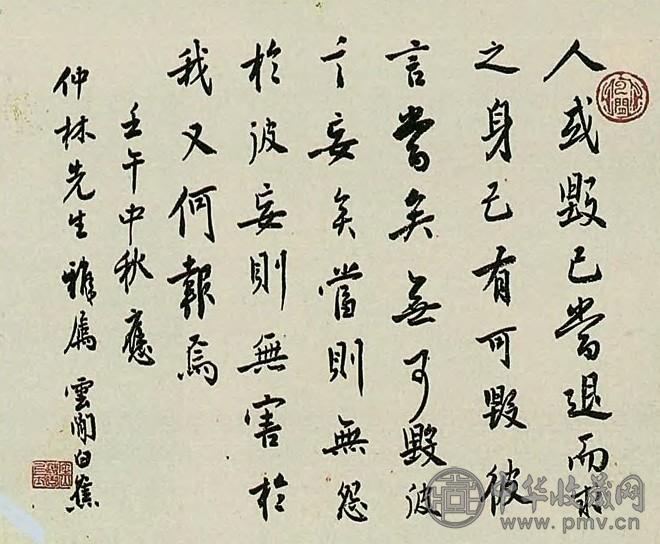 人或毀己當退而求
之身己有可毀彼
言當矣無可毀彼
言妄矣當則無怨
於彼妄則無害於
我又何報焉
壬午中秋應
仲林先生雅属 雲間白蕉
中华收藏网
www.pmv.cn